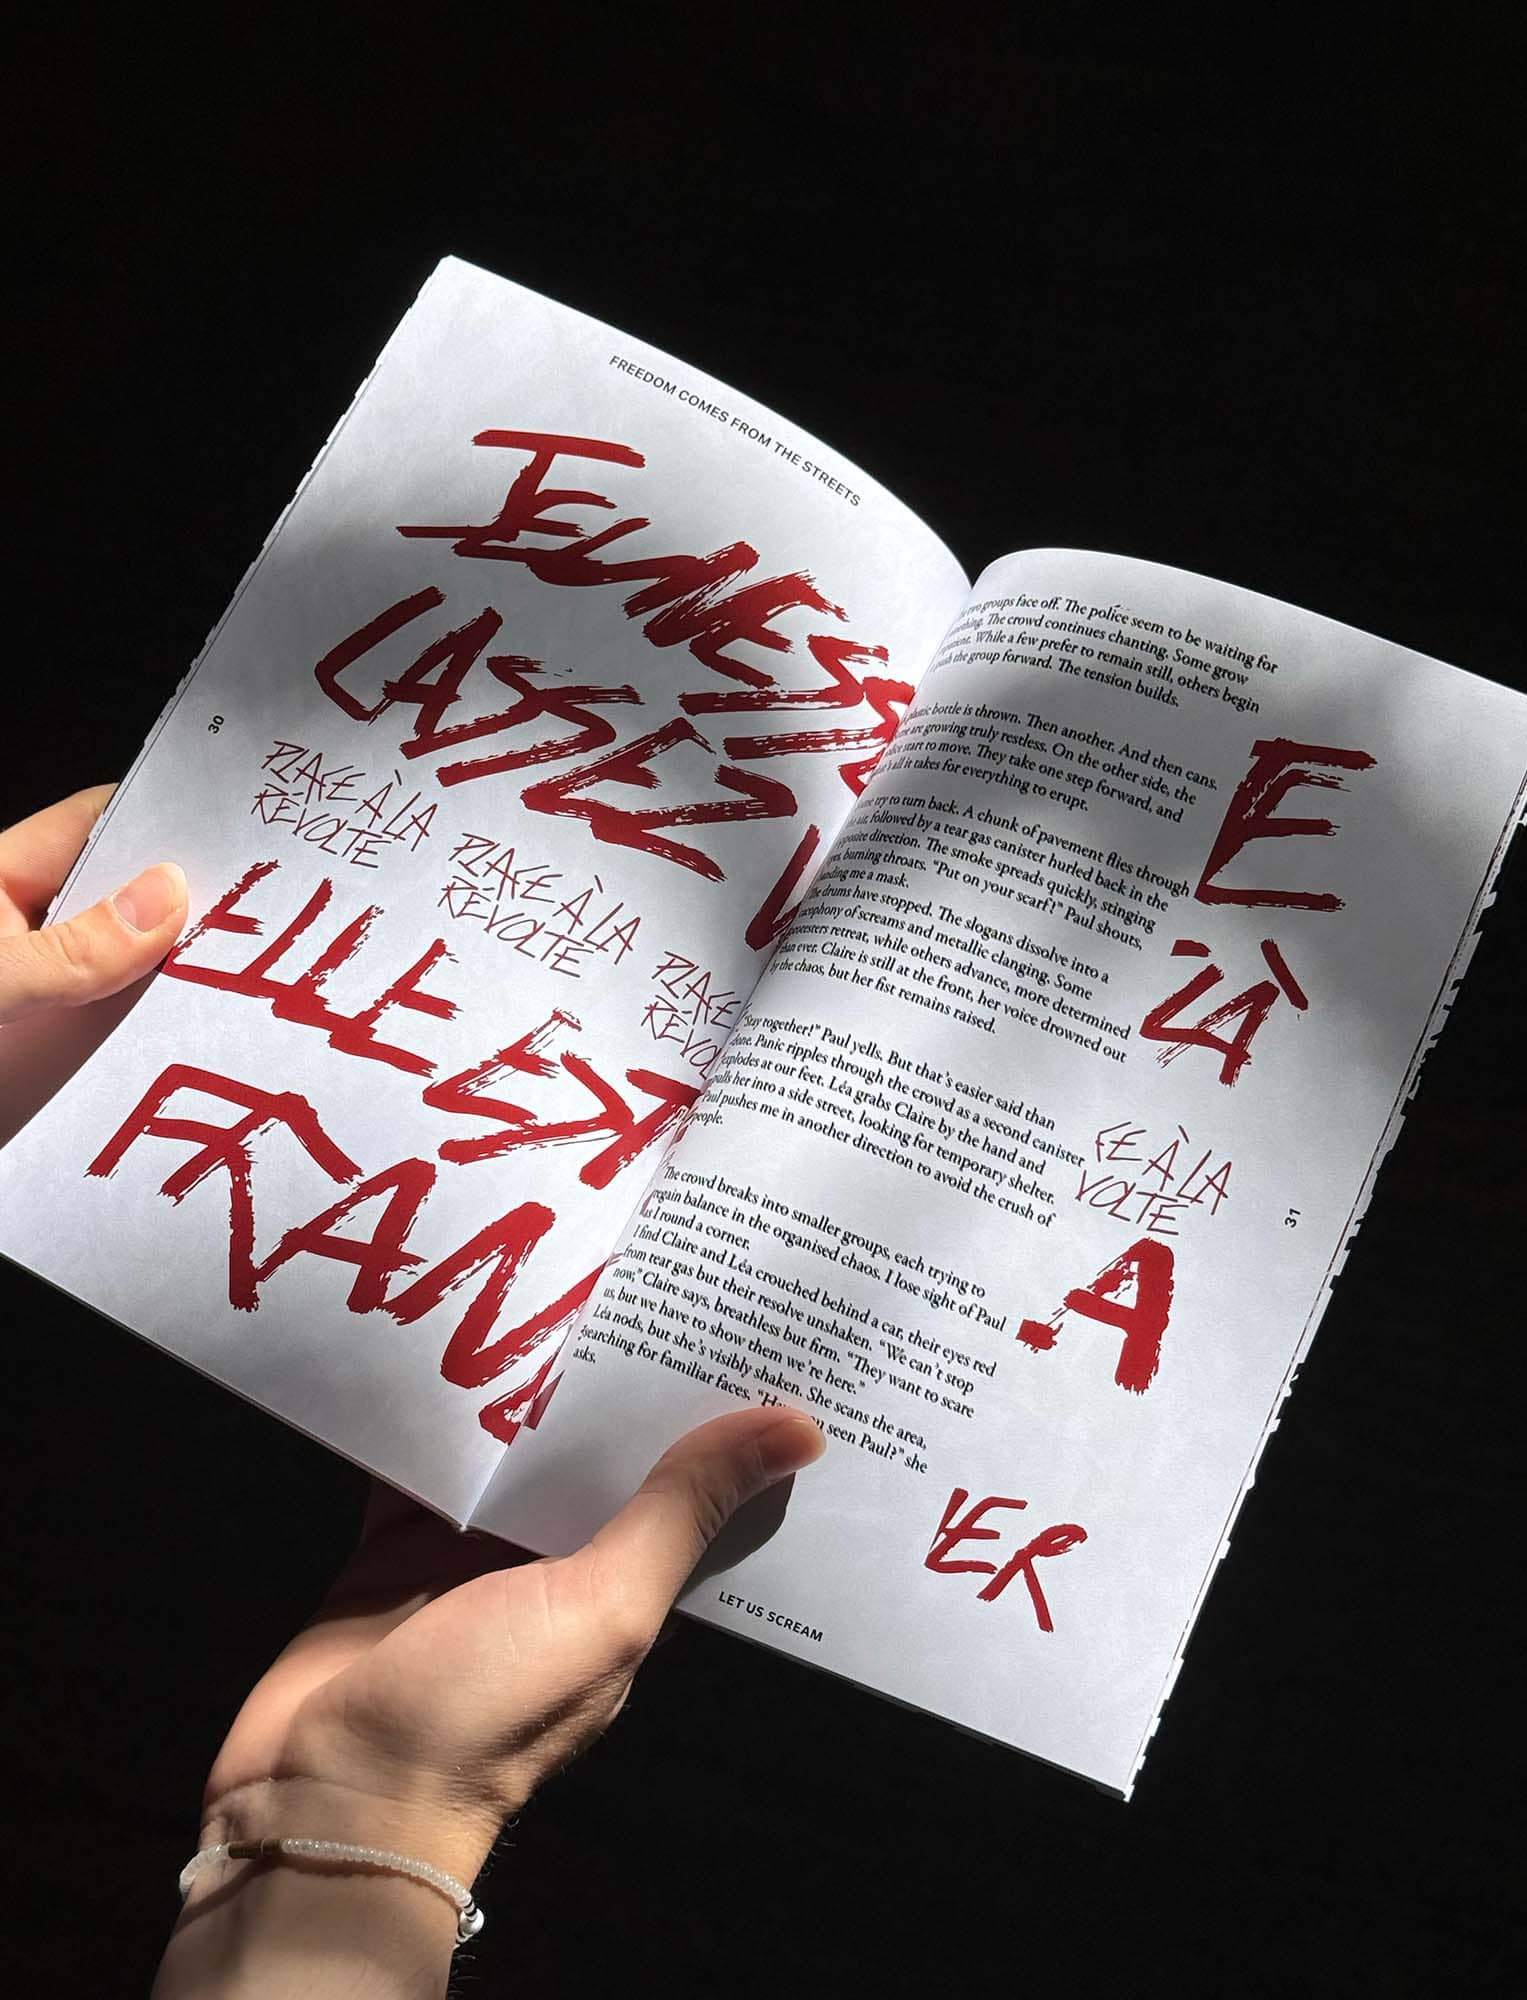 FREEDOM COMES FROM THE STREETS
JEUNESSE
LASSES
30
PLACE À LA
RÉVOLTE
PLACE À LA
RÉVOLTE
PLACE
RÉVO
ELLE EST
FRAN
two groups face off. The police seem to be waiting for
The crowd continues chanting. Some grow
While a few prefer to remain still, others begin
push the group forward. The tension builds,
bottle is thrown. Then another. And then cans.
are growing truly restless. On the other side, the
start to move. They take one step forward, and
all it takes for everything to erupt.
try to turn back. A chunk of pavement flies through
air, followed by a tear gas canister hurled back in the
opposite direction. The smoke spreads quickly, stinging
eyes, burning throats. “Put on your scarf!” Paul shouts,
handing me a mask.
The drums have stopped. The slogans dissolve into a
cacophony of screams and metallic clanging. Some
protesters retreat, while others advance, more determined
than ever. Claire is still at the front, her voice drowned out
by the chaos, but her fist remains raised.
“Stay together!” Paul yells. But that’s easier said than
done. Panic ripples through the crowd as a second canister
explodes at our feet. Léa grabs Claire by the hand and
pulls her into a side street, looking for temporary shelter.
Paul pushes me in another direction to avoid the crush of
people.
The crowd breaks into smaller groups, each trying to
regain balance in the organised chaos. I lose sight of Paul
as I round a corner.
I find Claire and Léa crouched behind a car, their eyes red
from tear gas but their resolve unshaken. “We can’t stop
now,” Claire says, breathless but firm. “They want to scare
us, but we have to show them we’re here.”
Léa nods, but she’s visibly shaken. She scans the area,
searching for familiar faces. seen Paul?” she
asks.
E
LÀ
CE À LA
VOLTE
31
A
ER
LET US SCREAM